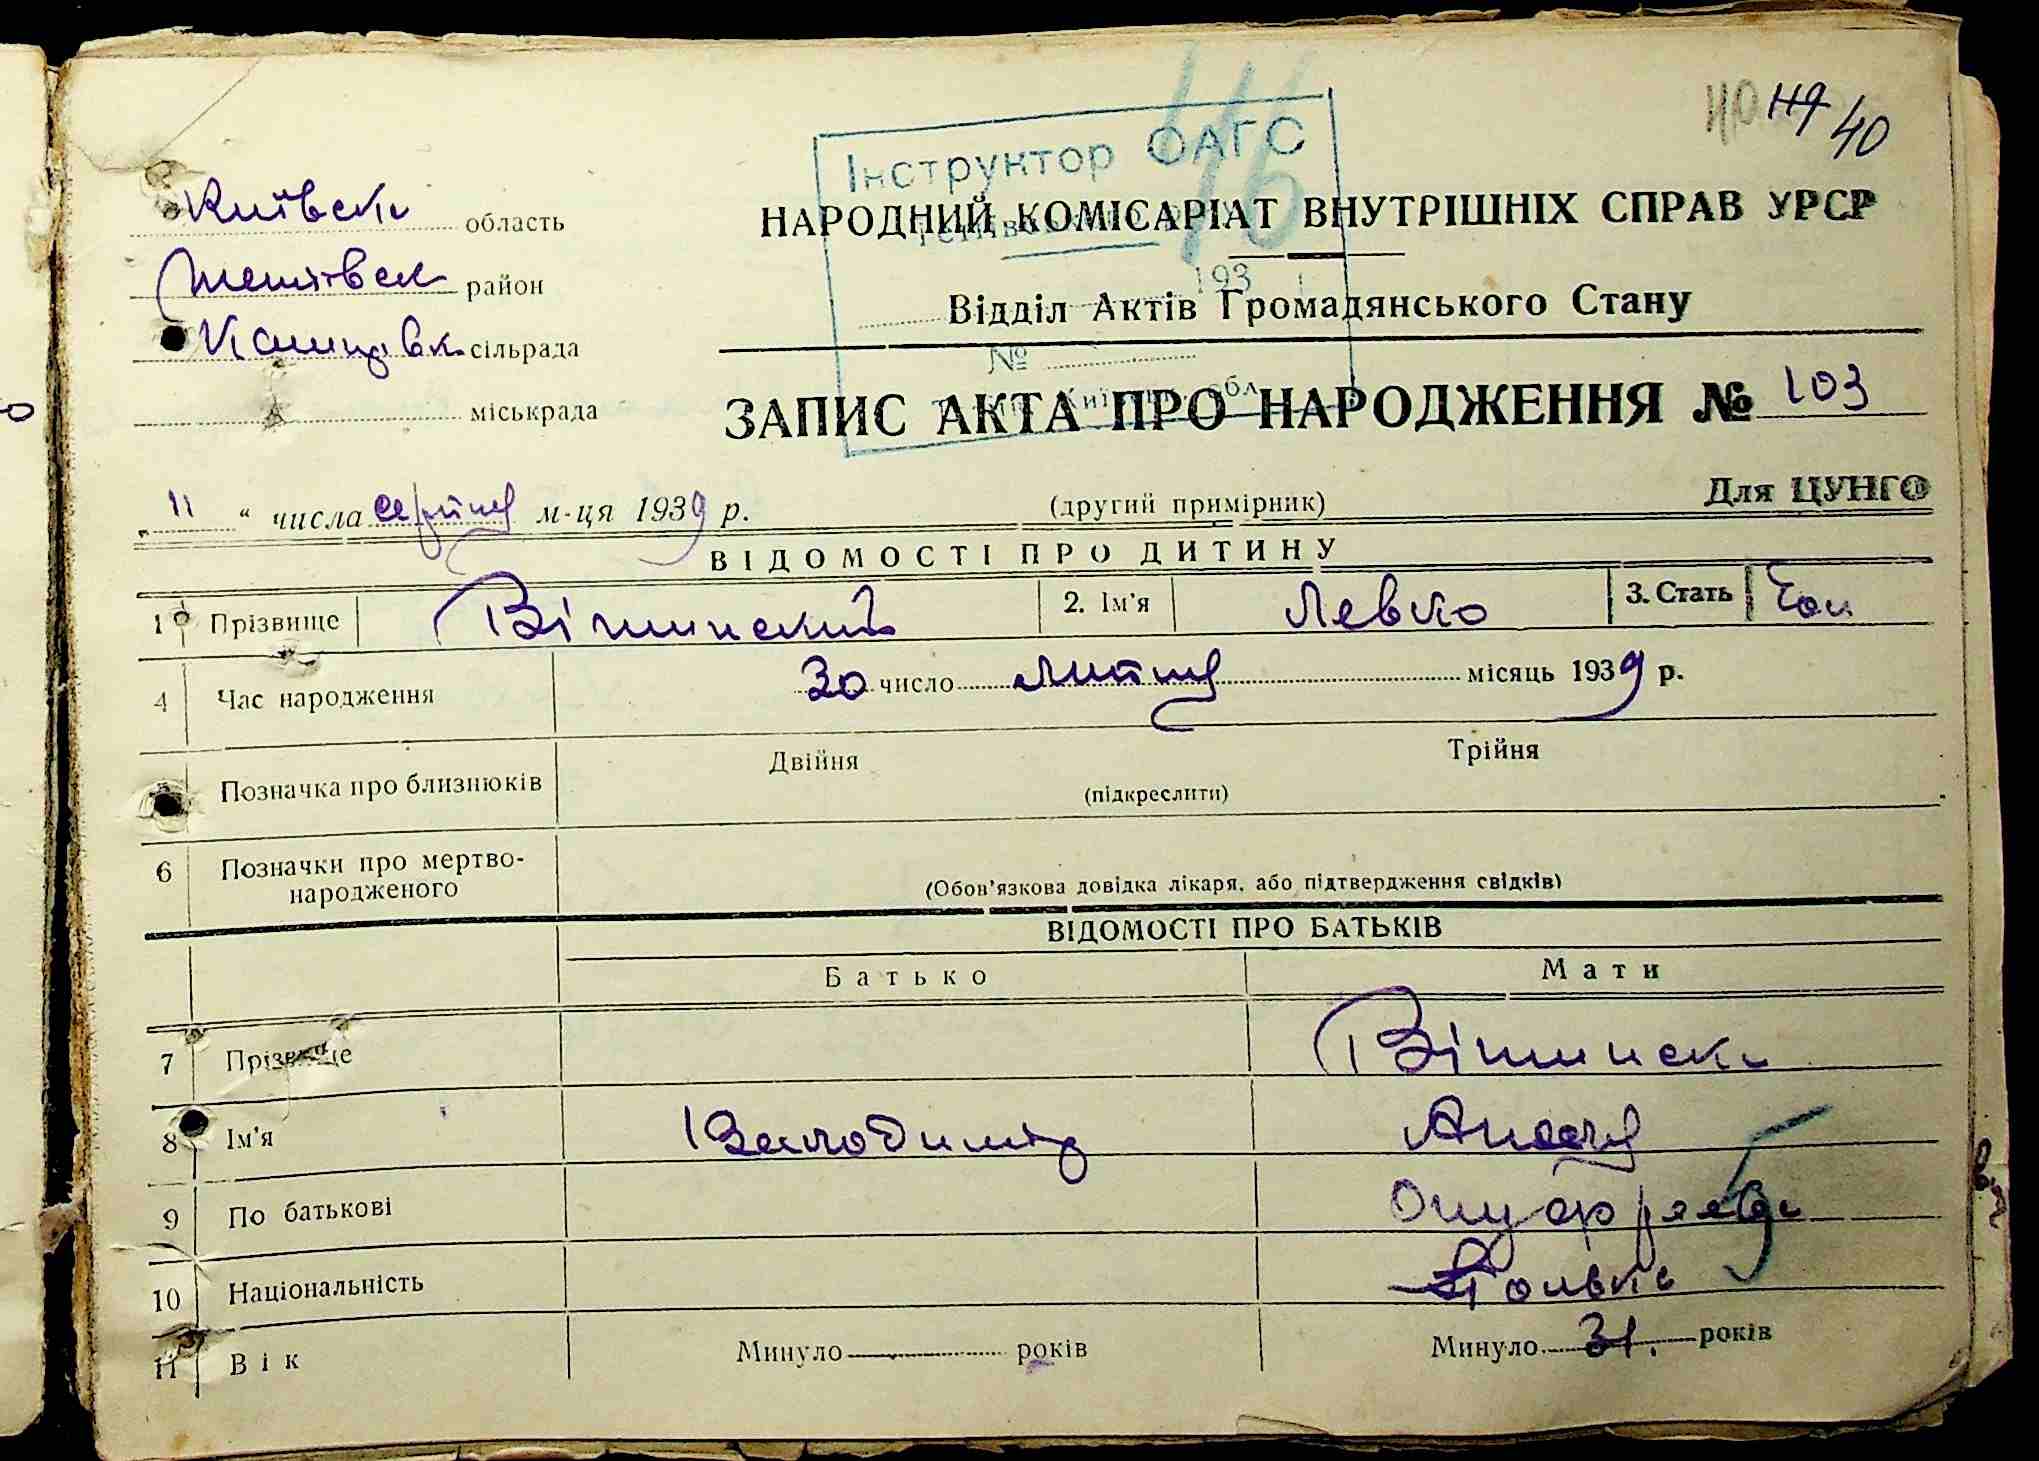 40 119 40
Інструктор ОАГС
116
Київськ область
НАРОДНИЙ КОМІСАРІАТ ВНУТРІШНІХ СПРАВ УРСР
Тетіївськ район
193
Відділ Актів Громадянського Стану
сільрада
№
міськрада
обл.
ЗАПИС АКТА ПРО НАРОДЖЕННЯ № 103
„11“ числа серпня м-ця 1939 р.
(другий примірник)
Для ЦУНГО
ВІДОМОСТІ ПРО ДИТИНУ
1 Прізвище Вішинский 2. Ім'я Левко 3. Стать Чол
4 Час народження 30 число липня місяць 1939 р.
Позначка про близнюків Двійня Трійня
(підкреслити)
6 Позначки про мертво-
народженого
(Обов'язкова довідка лікаря, або підтвердження свідків)
ВІДОМОСТІ ПРО БАТЬКІВ
Батько Мати
7 Прізвище Вішинськ
8 Ім'я Володимір
9 По батькові
10 Національність Полька
11 Вік Минуло років Минуло 31. років